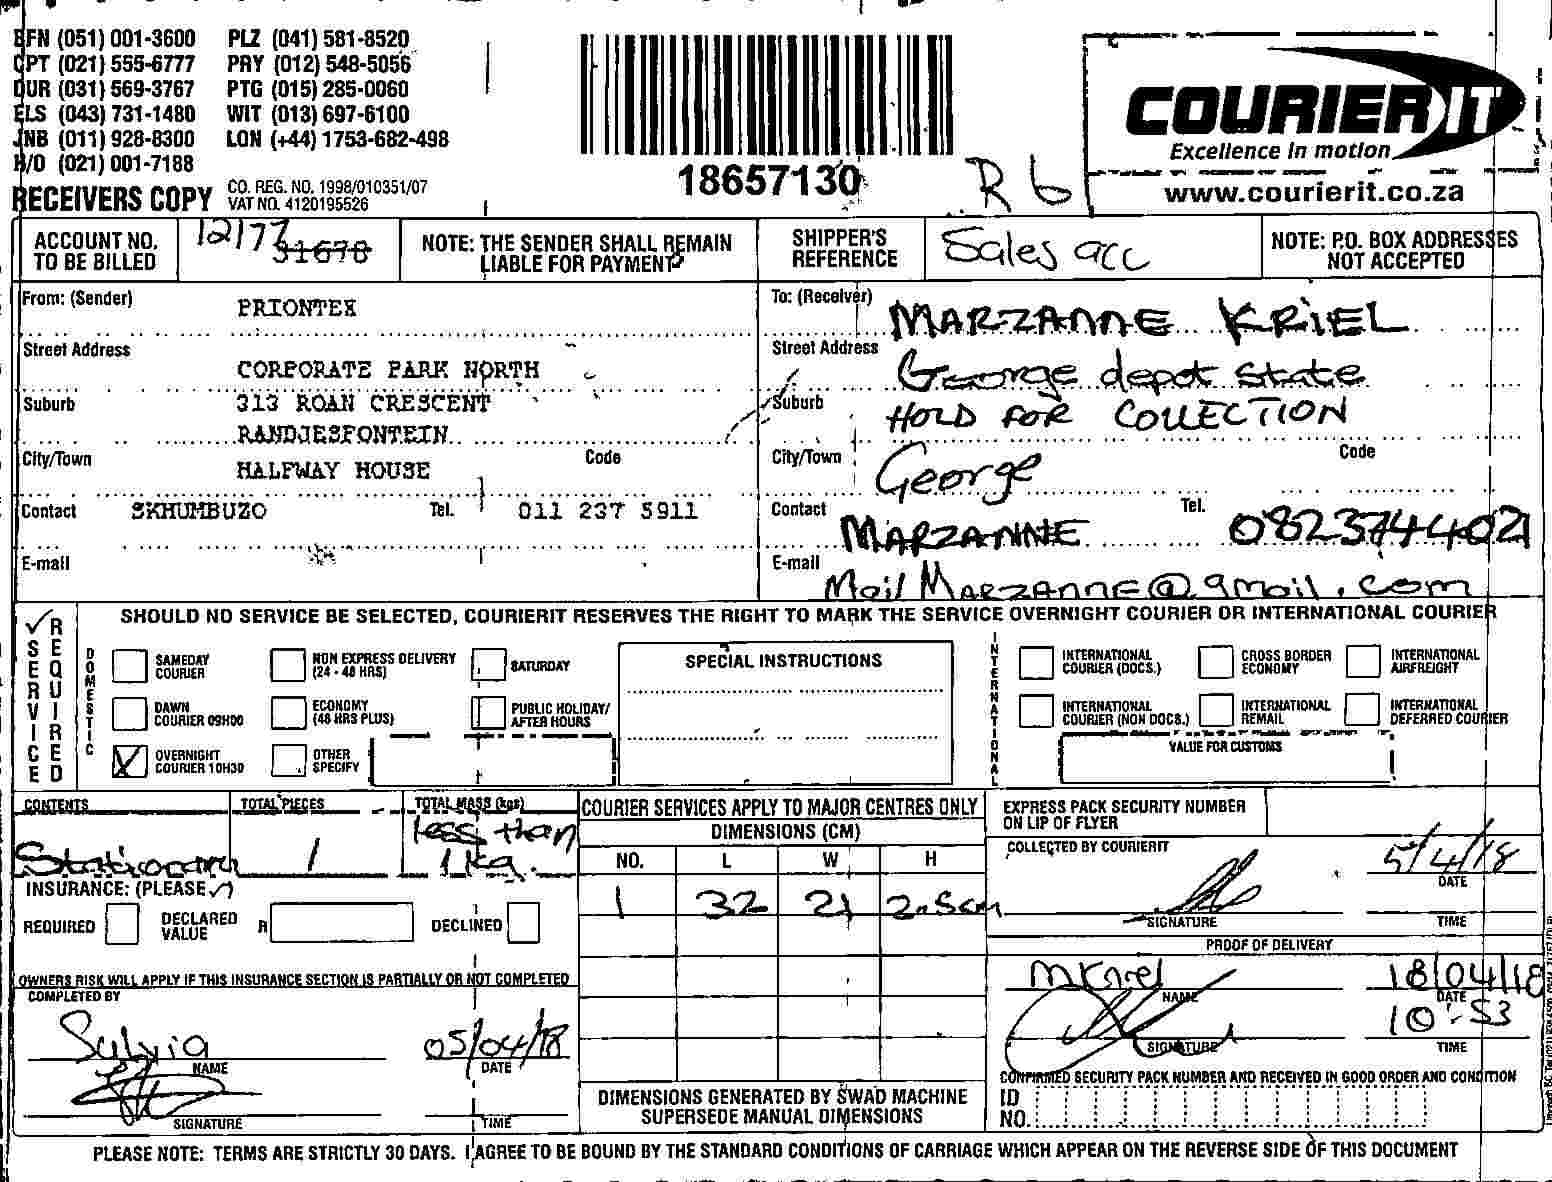 BFN (051) 001-3600 PLZ (041) 581-8520
CPT (021) 555-6777 PRY (012) 548-5056
DUR (031) 569-3767 PTG (015) 285-0060
ELS (043) 731-1480 WIT (013) 697-6100
JNB (011) 928-8300 LON (+44) 1753-682-498
H/O (021) 001-7188
RECEIVERS COPY CO. REG. NO. 1998/010351/07
VAT NO. 4120195526
18657130
R6
COURIERIT
Excellence in motion
www.courierit.co.za
ACCOUNT NO. TO BE BILLED 12177 31678
NOTE: THE SENDER SHALL REMAIN LIABLE FOR PAYMENT
SHIPPER'S REFERENCE Sales acc
NOTE: P.O. BOX ADDRESSES NOT ACCEPTED
From: (Sender) PRIONTEX
Street Address CORPORATE PARK NORTH
Suburb 313 ROAN CRESCENT
RANDJESFONTEIN
City/Town HALFWAY HOUSE Code
Contact SKHUMBUZO Tel. 011 237 5911
E-mail
To: (Receiver) MARZANNE KRIEL
Street Address George depot state
Suburb HOLD FOR COLLECTION
City/Town George Code
Contact MARZANNE Tel. 0823744021
E-mail MailMARZANNE@gmail.com
SERVICE REQUIRED
SHOULD NO SERVICE BE SELECTED, COURIERIT RESERVES THE RIGHT TO MARK THE SERVICE OVERNIGHT COURIER OR INTERNATIONAL COURIER
DOMESTIC
SAMEDAY COURIER
NON EXPRESS DELIVERY (24 - 48 HRS)
SATURDAY
DAWN COURIER 09H00
ECONOMY (48 HRS PLUS)
PUBLIC HOLIDAY/ AFTER HOURS
OVERNIGHT COURIER 10H30
OTHER SPECIFY
SPECIAL INSTRUCTIONS
INTERNATIONAL
INTERNATIONAL COURIER (DOCS.)
CROSS BORDER ECONOMY
INTERNATIONAL AIRFREIGHT
INTERNATIONAL COURIER (NON DOCS.)
INTERNATIONAL REMAIL
INTERNATIONAL DEFERRED COURIER
VALUE FOR CUSTOMS
CONTENTS TOTAL PIECES TOTAL MASS (kgs)
Stationary 1 less than 1kg.
INSURANCE: (PLEASE ✓)
REQUIRED DECLARED VALUE R DECLINED
OWNERS RISK WILL APPLY IF THIS INSURANCE SECTION IS PARTIALLY OR NOT COMPLETED
COMPLETED BY
Sylvia 05/04/18
NAME DATE
SIGNATURE TIME
COURIER SERVICES APPLY TO MAJOR CENTRES ONLY
DIMENSIONS (CM)
NO. L W H
1 32 21 2.5cm
DIMENSIONS GENERATED BY SWAD MACHINE SUPERSEDE MANUAL DIMENSIONS
EXPRESS PACK SECURITY NUMBER ON LIP OF FLYER
COLLECTED BY COURIERIT 5/4/18
DATE
SIGNATURE TIME
PROOF OF DELIVERY
MKriel 18/04/18
NAME DATE
10:53
SIGNATURE TIME
CONFIRMED SECURITY PACK NUMBER AND RECEIVED IN GOOD ORDER AND CONDITION
ID NO.
PLEASE NOTE: TERMS ARE STRICTLY 30 DAYS. I AGREE TO BE BOUND BY THE STANDARD CONDITIONS OF CARRIAGE WHICH APPEAR ON THE REVERSE SIDE OF THIS DOCUMENT